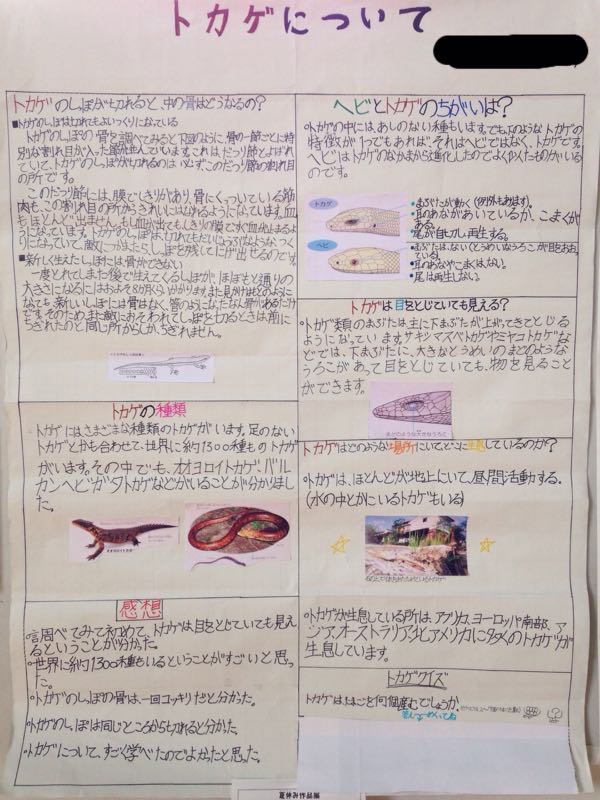 トカゲについて
トカゲのしっぽが切れると、中の骨はどうなるの?
■トカゲのしっぽは切れてもよいつくりになっている
トカゲのしっぽの骨を調べてみると下図のように、骨の一節ごとに特
別な割れ目が入った節が並んでいます。これは、だっり節とよばれ
ていて、トカゲのしっぽが切れるのは必ず、このだっり節の割れ目
の所です。
このだっり節には、膜でしきりがあり、骨にくっついている筋
肉も、この割れ目の所からきれいにはなれるようになっています。血
もほとんど出ません。
りになっていて、敵につかまったら、しっぽを残してにげ出せるのです。
■新しく生えたしっぽには骨ができない
一度とれてしまった後で生えてくるしっぽが、ほぼもと通りの
大きさになるにはおおよそ8か月くらいかかります。また見かけはもとのように
なっても、新しいしっぽには骨はなく、
です。そのため、また敵におそわれてしっぽを切るときは前に
ちぎれたのと同じ所からしか、ちぎれません。
トカゲの種類
トカゲにはさまざまな種類のトカゲがいます。足のない
トカゲとかも合わせて、世界に約1300種ものトカゲ
がいます。その中でも、オオヨロイトカゲ、バル
カンヘビガタトカゲなどがいることが分かりまし
た。
オオヨロイトカゲ
感想
・調べてみて初めて、トカゲは目をとじていても見え
るということが分かった。
・世界に約1300種もいるということがすごいと思っ
た。
・トカゲのしっぽの骨は、一回コッキリだと分かった。
・トカゲのしっぽは同じところから切れると分かった。
・トカゲについて、すごく学べたのでよかったと思った。
ヘビとトカゲのちがいは?
・トカゲの中には、あしのない種もいます。でも下のようなトカゲの
特徴が1つでもあれば、それはヘビではなく、トカゲです。
ヘビはトカゲのなかまから進化したのでよくにたものがいる
のです。
トカゲ
・まぶたが動く(例外もあります)。
・耳のあながあいているか、こまくが
ある。
・尾が自切し、再生する。
ヘビ
・まぶたはない(とうめいなうろこが目をおおっ
ている)。
・耳のあなやこまくはない。
・尾は再生しない。
トカゲは目をとじていても見える?
・トカゲ類のまぶたは主に下まぶたが上がってきてとじる
ようになっています。サキシマスベトカゲやミヤコトカゲな
どでは、下まぶたに、大きなとうめいのまどのような
うろこがあって目をとじていても、物を見ること
ができます。
まどのような大きなうろこ
トカゲはどのような場所にいて、どこに生息しているのか?
・トカゲは、ほとんどが地上にいて、昼間活動する。
(水の中とかにいるトカゲもいる)
・トカゲが生息している所は、アフリカ、ヨーロッパ南部、ア
ジア、オーストラリア、北アメリカに多くのトカゲが
生息しています。
トカゲクイズ
トカゲはたまごを何個産むでしょうか。
夏休み作品展